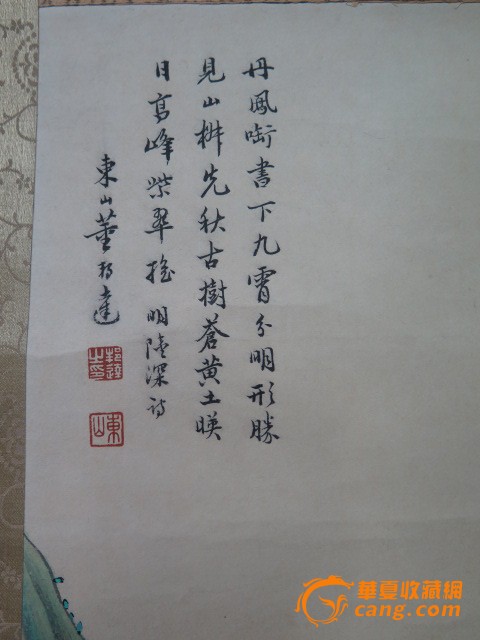 丹鳳啣書下九霄分明形勝
見山椒先秋古樹蒼黃出暎
日高峰紫翠搖 明陸深詩
東山董邦達
邦達之印
東山
華夏收藏網
cang.com